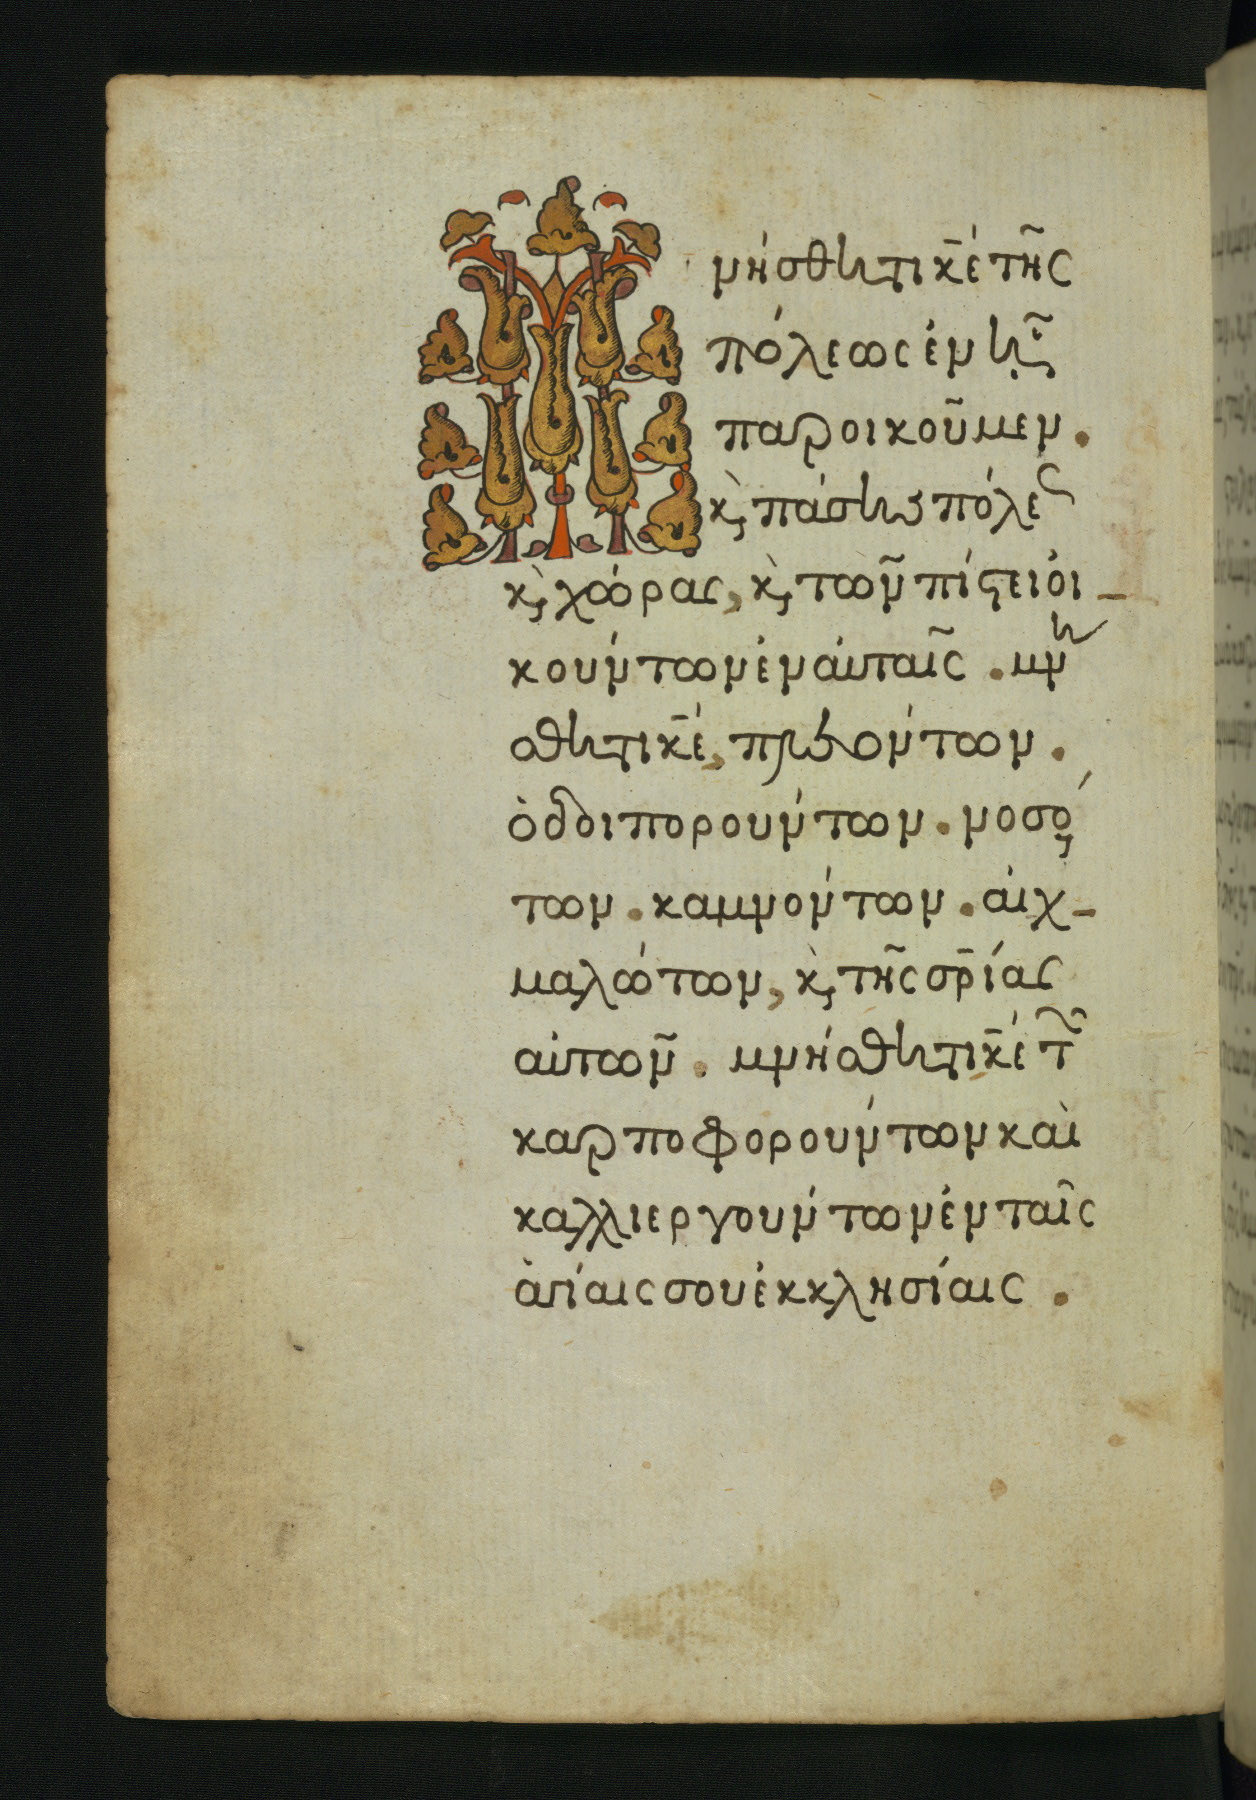 Μνήσθητι κ̅ε̅ τῆς
πόλεως ἐν ἧ
παροικοῦμεν.
κ̀ πάσης πόλε͂ς
κ̀ χώρας, κ̀ τῶν πίστει οἰ-
κούντων ἐν αὐταῖς. μνή
σθητι κ̅ε̅, πλεόντων.
ὁδοιπορούντων. νοσού
των. καμνόντων. αἰχ-
μαλώτων, κ̀ τῆς σρ̅ίας
αὐτῶν. μνήσθητι κ̅ε̅ τ῀
καρποφορούντων καὶ
καλλιεργούντων ἐν ταῖς
ἁγίαις σου ἐκκλησίαις.